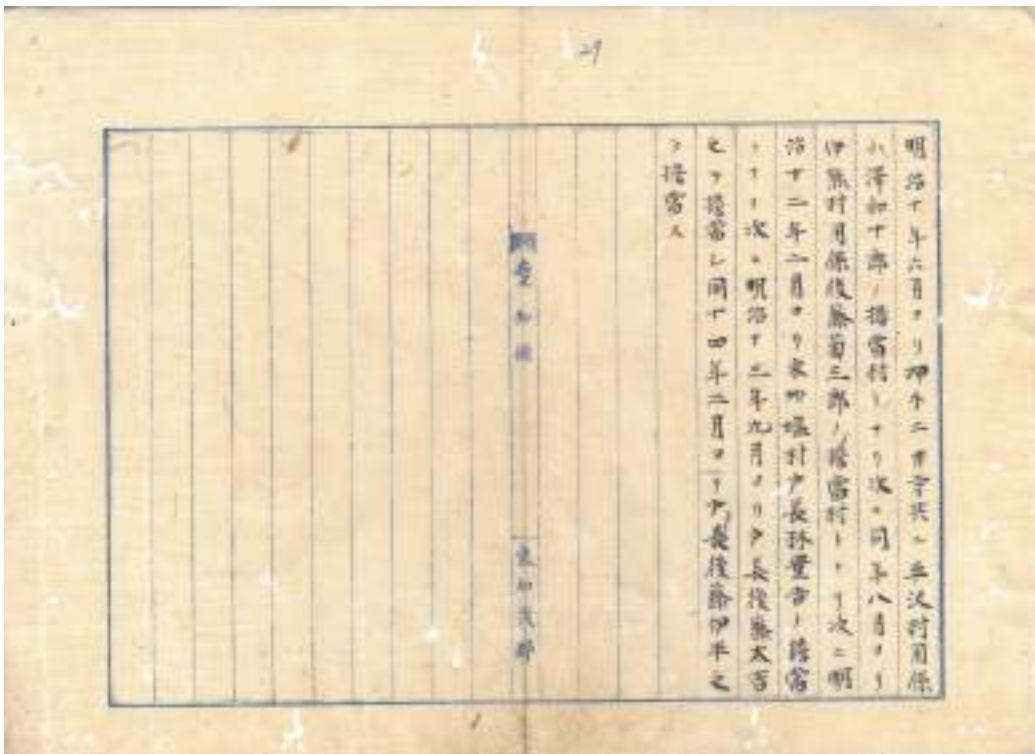 29
明治十年六月ヨリ押手二井寺共ニ平沢村用係
小澤初十郎ノ擔當村トナリ次ニ同年八月ヨリ
伊熊村用係後藤菊三郎ノ擔當村トナリ次ニ明
治十二年二月ヨリ東 村戸長 吉ノ擔當
トナリ次ニ明治十三年九月ヨリ戸長後藤太吉
之ヲ擔當シ同十四年二月ヨリ戸長後藤伊平之
ヲ擔當ス
愛知縣
東加茂郡